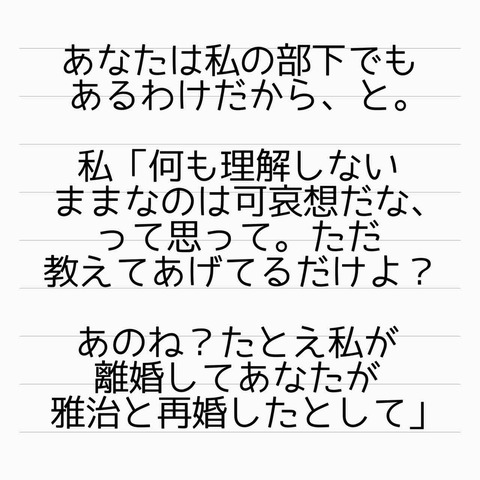 あなたは私の部下でも
あるわけだから、と。
私「何も理解しない
ままなのは可哀想だな、
って思って。ただ
教えてあげてるだけよ？
あのね？たとえ私が
離婚してあなたが
雅治と再婚したとして」